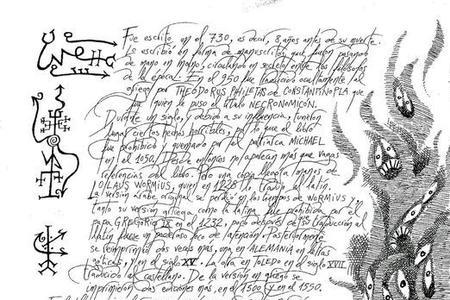 Fue escrito en el 730, es decir, 8 años antes de su muerte.
Lo escribió en forma de manuscritos que fueron pasando
de mano en mano, circulando en secreto entre los
de la época. En el 950 fue traducido ocultamente al
griego por THEODORUS PHILETAS de CONSTANTINOPLA que
fue quien le puso el título NECRONOMICON.
Durante un siglo, y debido a su influencia, tuvieron
lugar ciertos hechos por lo que el libro
fue prohibido y quemado por el patriarca MICHAEL
en el 1050. Desde entonces no aparecen más que vagas
referencias del libro. Pero una copia llegó a manos de
OLAUS WORMIUS, quien en 1228 lo tradujo al latín.
La versión árabe original se perdió en los tiempos de WORMIUS y
tanto su versión griega como la latina fue prohibida por el
papa GREGORIO IX en el 1232, poco después de su traducción al
latín
se imprimió dos veces más, una en ALEMANIA en letras
góticas, en el siglo XV. La otra en TOLEDO en el siglo XVII
traducido al castellano. De la versión en griego se
imprimieron dos ediciones más, en el 1500 y en el 1550.